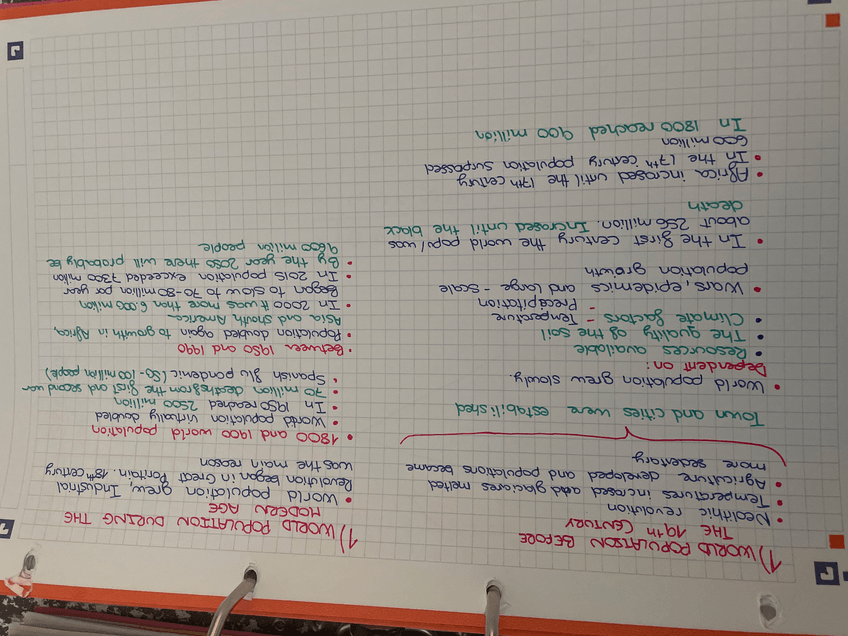 1) WORLD POPULATION BEFORE
THE 19th CENTURY
• Neolithic revolution
• Temperatures increased and glaciares melted
• Agriculture developed and populations became
more sedentary
Town and cities were estabilished
• World population grew slowly.
Dependent on:
• Resources available
• The quality of the soil
• Climate factors - Temperature
- Precipitation
• Wars, epidemics and large-scale
population growth
• In the first century the world popul was
about 256 million. Increased until the black
death
• Africa increased until the 17th century
• In the 17th century population surpassed
600 million
In 1800 reached 900 million
1) WORLD POPULATION DURING THE
MODERN AGE
• World population grew, Industrial
Revolution began in Great Britain. 18th century
was the main reason
• 1800 and 1900 world population
• World's population virtually doubled
• In 1950 reached 2500 million
• 70 million deaths from the first and second war
• Spanish flu pandemic (50-100 million people)
• Between 1950 and 1990
• Population doubled again to growth in Africa,
Asia and South America
• In 2000 it was more than 6.000 million
Began to slow to 70-80 million per year
• In 2015 population exceeded 7300 million
• By the year 2050 there will probably be
9.600 million people